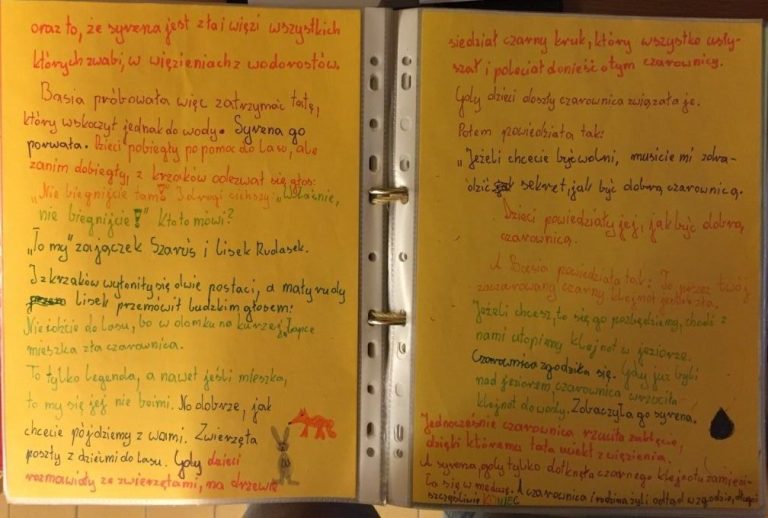 oraz to, że syrena jest zła i więzi wszystkich
których zwabi, w więzieniach z wodorostów.
Basia próbowała więc zatrzymać tatę,
który wskoczył jednak do wody. Syrena go
porwała. Dzieci pobiegły po pomoc do lasu, ale
zanim dobiegły, z krzaków odezwał się głos:
"Nie biegnijcie tam!" I drugi cichszy: "Właśnie,
nie biegnijcie!" Kto to mówi?
"To my" zajączek Szaruś i lisek Rudasek.
I z krzaków wyłoniły się dwie postaci, a mały rudy
lisek przemówił ludzkim głosem:
Nie idźcie do lasu, bo w domku na kurzej łapce
mieszka zła czarownica.
To tylko legenda, a nawet jeśli mieszka,
to my się jej nie boimi. No dobrze, jak
chcecie pójdziemy z wami. Zwierzęta
poszły z dziećmi do lasu. Gdy dzieci
rozmawiały ze zwierzętami, na drzewie
siedział czarny kruk, który wszystko usły-
szał i poleciał donieść o tym czarownicy.
Gdy dzieci doszły czarownica związała je.
Potem powiedziała tak:
"Jeżeli chcecie być wolni, musicie mi zdra-
dzić sekret, jak być dobrą czarownicą.
Dzieci powiedziały jej, jak być dobrą
czarownicą.
A Basia powiedziała tak: To przez twój
zaczarowany czarny klejnot jesteś zła.
Jeżeli chcesz, to się go pozbędziemy, chodź z
nami utopimy klejnot w jeziorze.
Czarownica zgodziła się. Gdy już byli
nad jeziorem czarownica wrzuciła
klejnot do wody. Zobaczyła go syrena.
Jednocześnie czarownica rzuciła zaklęcie,
dzięki któremu tata uciekł z więzienia.
A syrena, gdy tylko dotknęła czarnego klejnotu zamieni-
ła się w meduzę. A czarownica i rodzina żyli odtąd w zgodzie, długo i
szczęśliwie KONIEC